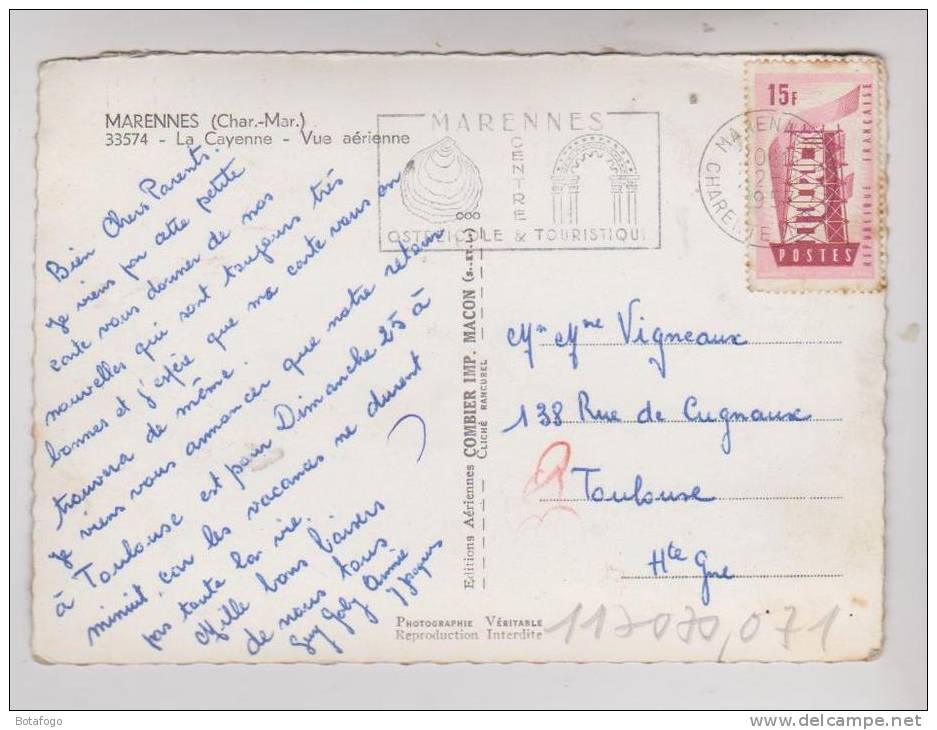 MARENNES (Char.-Mar.)
33574 - La Cayenne - Vue aérienne
Bien Chers Parents.
Je viens par cette petite
carte vous donner de nos
nouvelles qui sont toujours très
bonnes et j'espère que ma carte vous en
trouvera de même.
Je viens vous annoncer que notre retour
à Toulouse est pour Dimanche 25 à
minuit, car les vacances ne durent
pas toute la vie.
Mille bons baisers
de nous tous
Guy Gaby Annie
Jacques
MARENNES
CENTRE
OSTREICOLE & TOURISTIQUE
MAREN
CHARENTE
15F
POSTES
REPUBLIQUE FRANÇAISE
Editions Aériennes COMBIER IMP. MACON (S.-ET-L.)
CLICHÉ RANCUREL
Mr Mme Vigneaux
138 Rue de Cugnaux
Toulouse
Hte Gne
PHOTOGRAPHIE VÉRITABLE
Reproduction Interdite
117070,071
Botafogo
www.delcampe.net